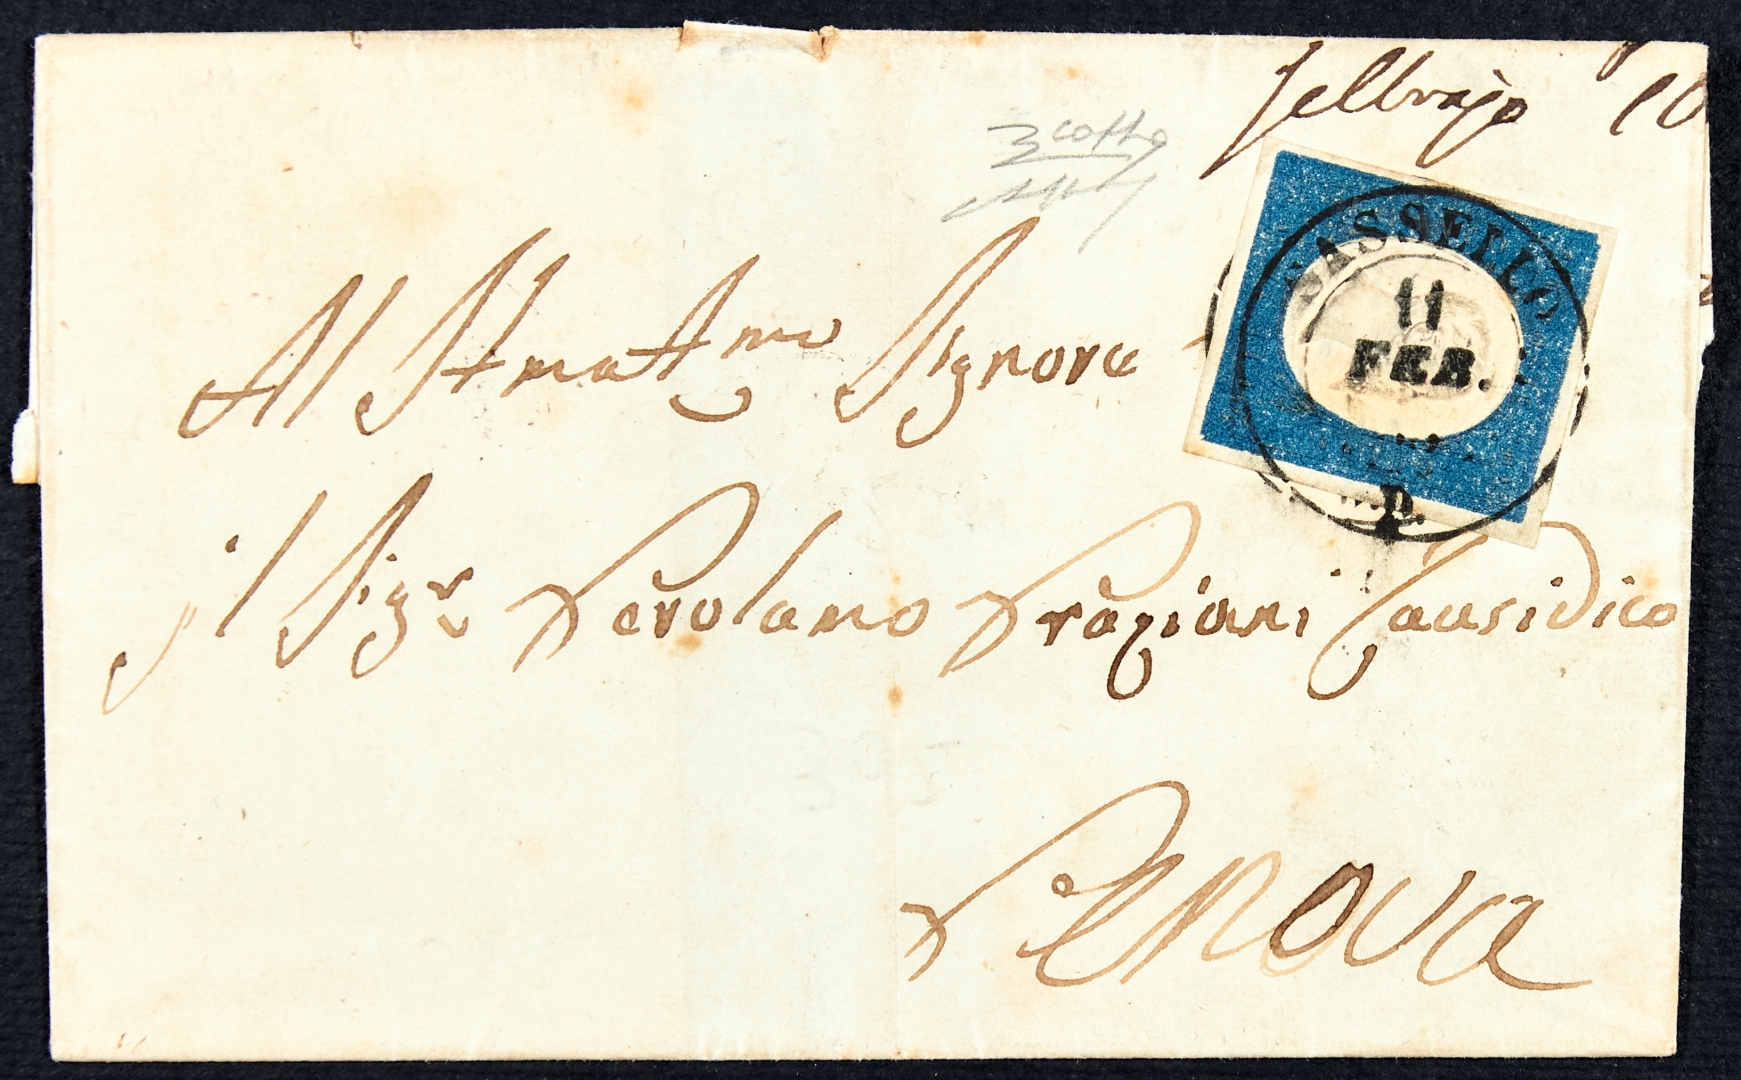 febbrajo 10
SASSELLO
11
FEB.
Al Stma Amo Signore
il Sigr Gerolamo Graziani Causidico
Genova